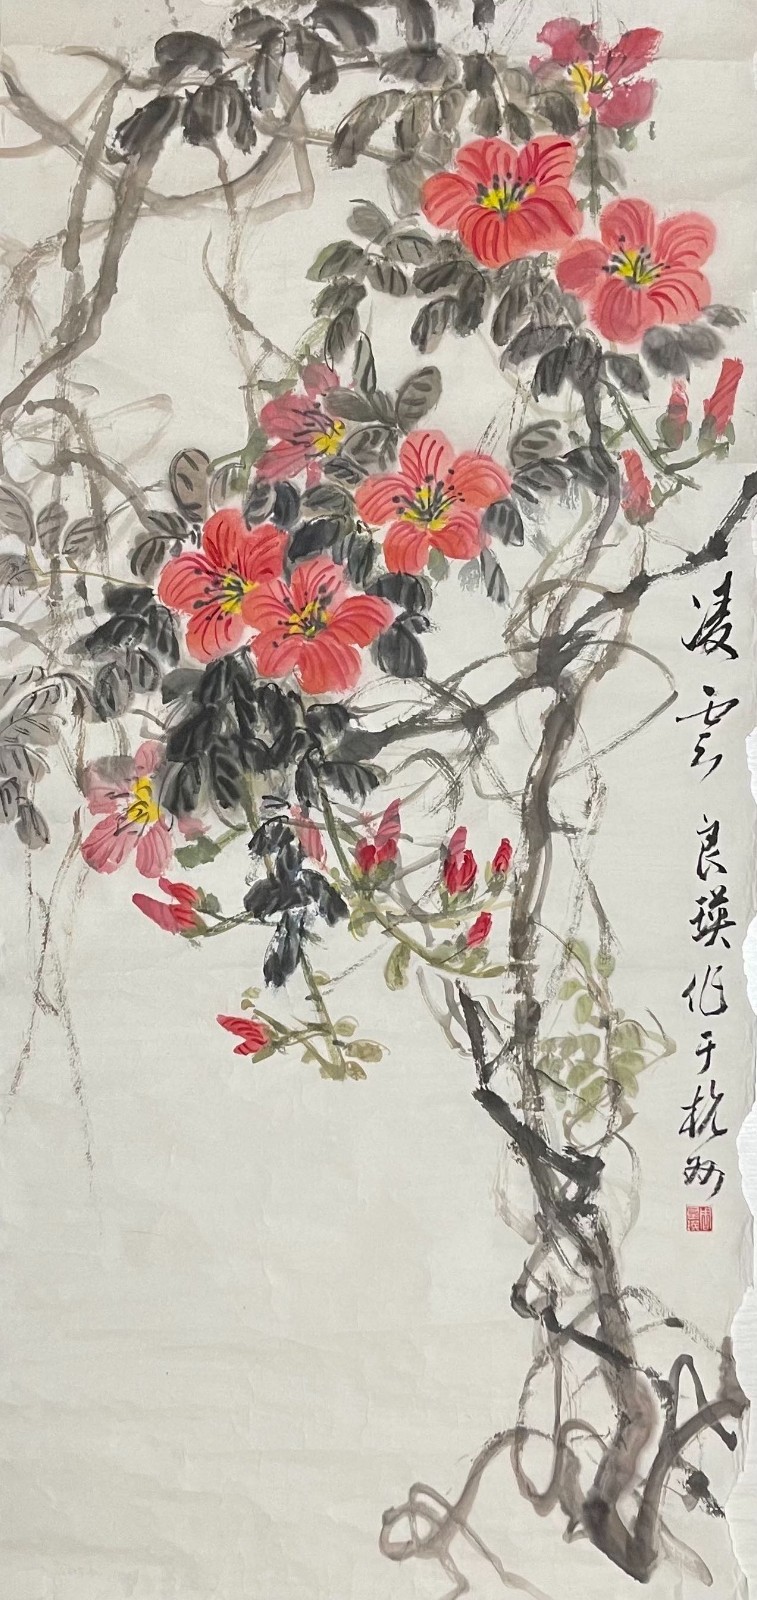 凌雲 良瑛作于杭州